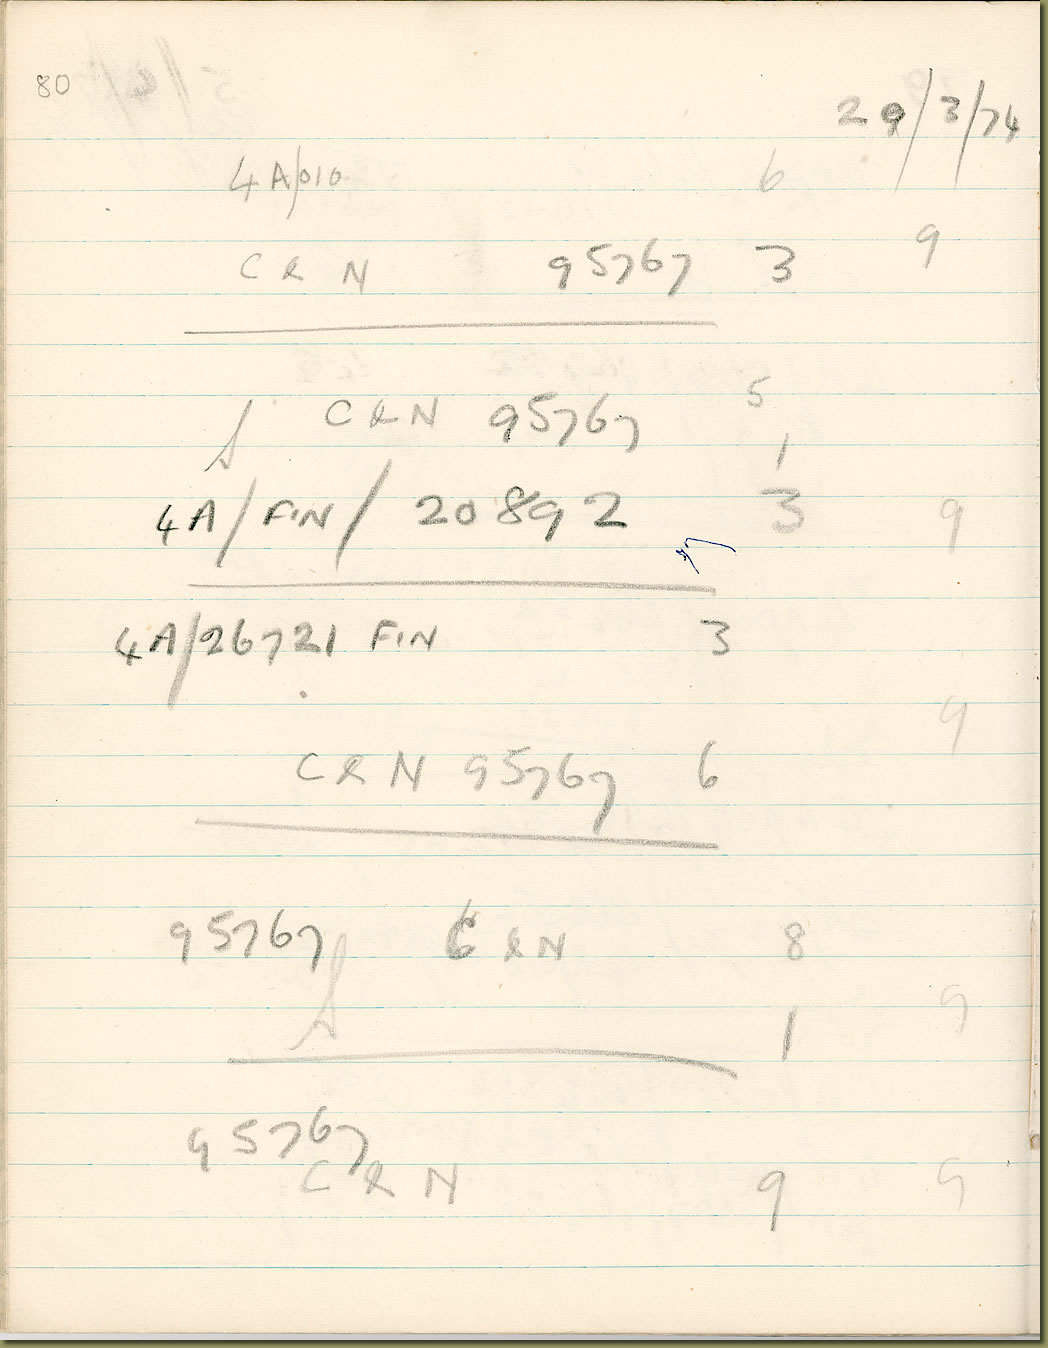 80
29/3/74
4A/010 6
C & N 95767 3 9
C & N 95767 5
S 1
4A/FIN/20892 3 9
4A/26721 FIN 3
9
C & N 95767 6
95767 C & N 8
S 1 9
95767
C & N 9 9